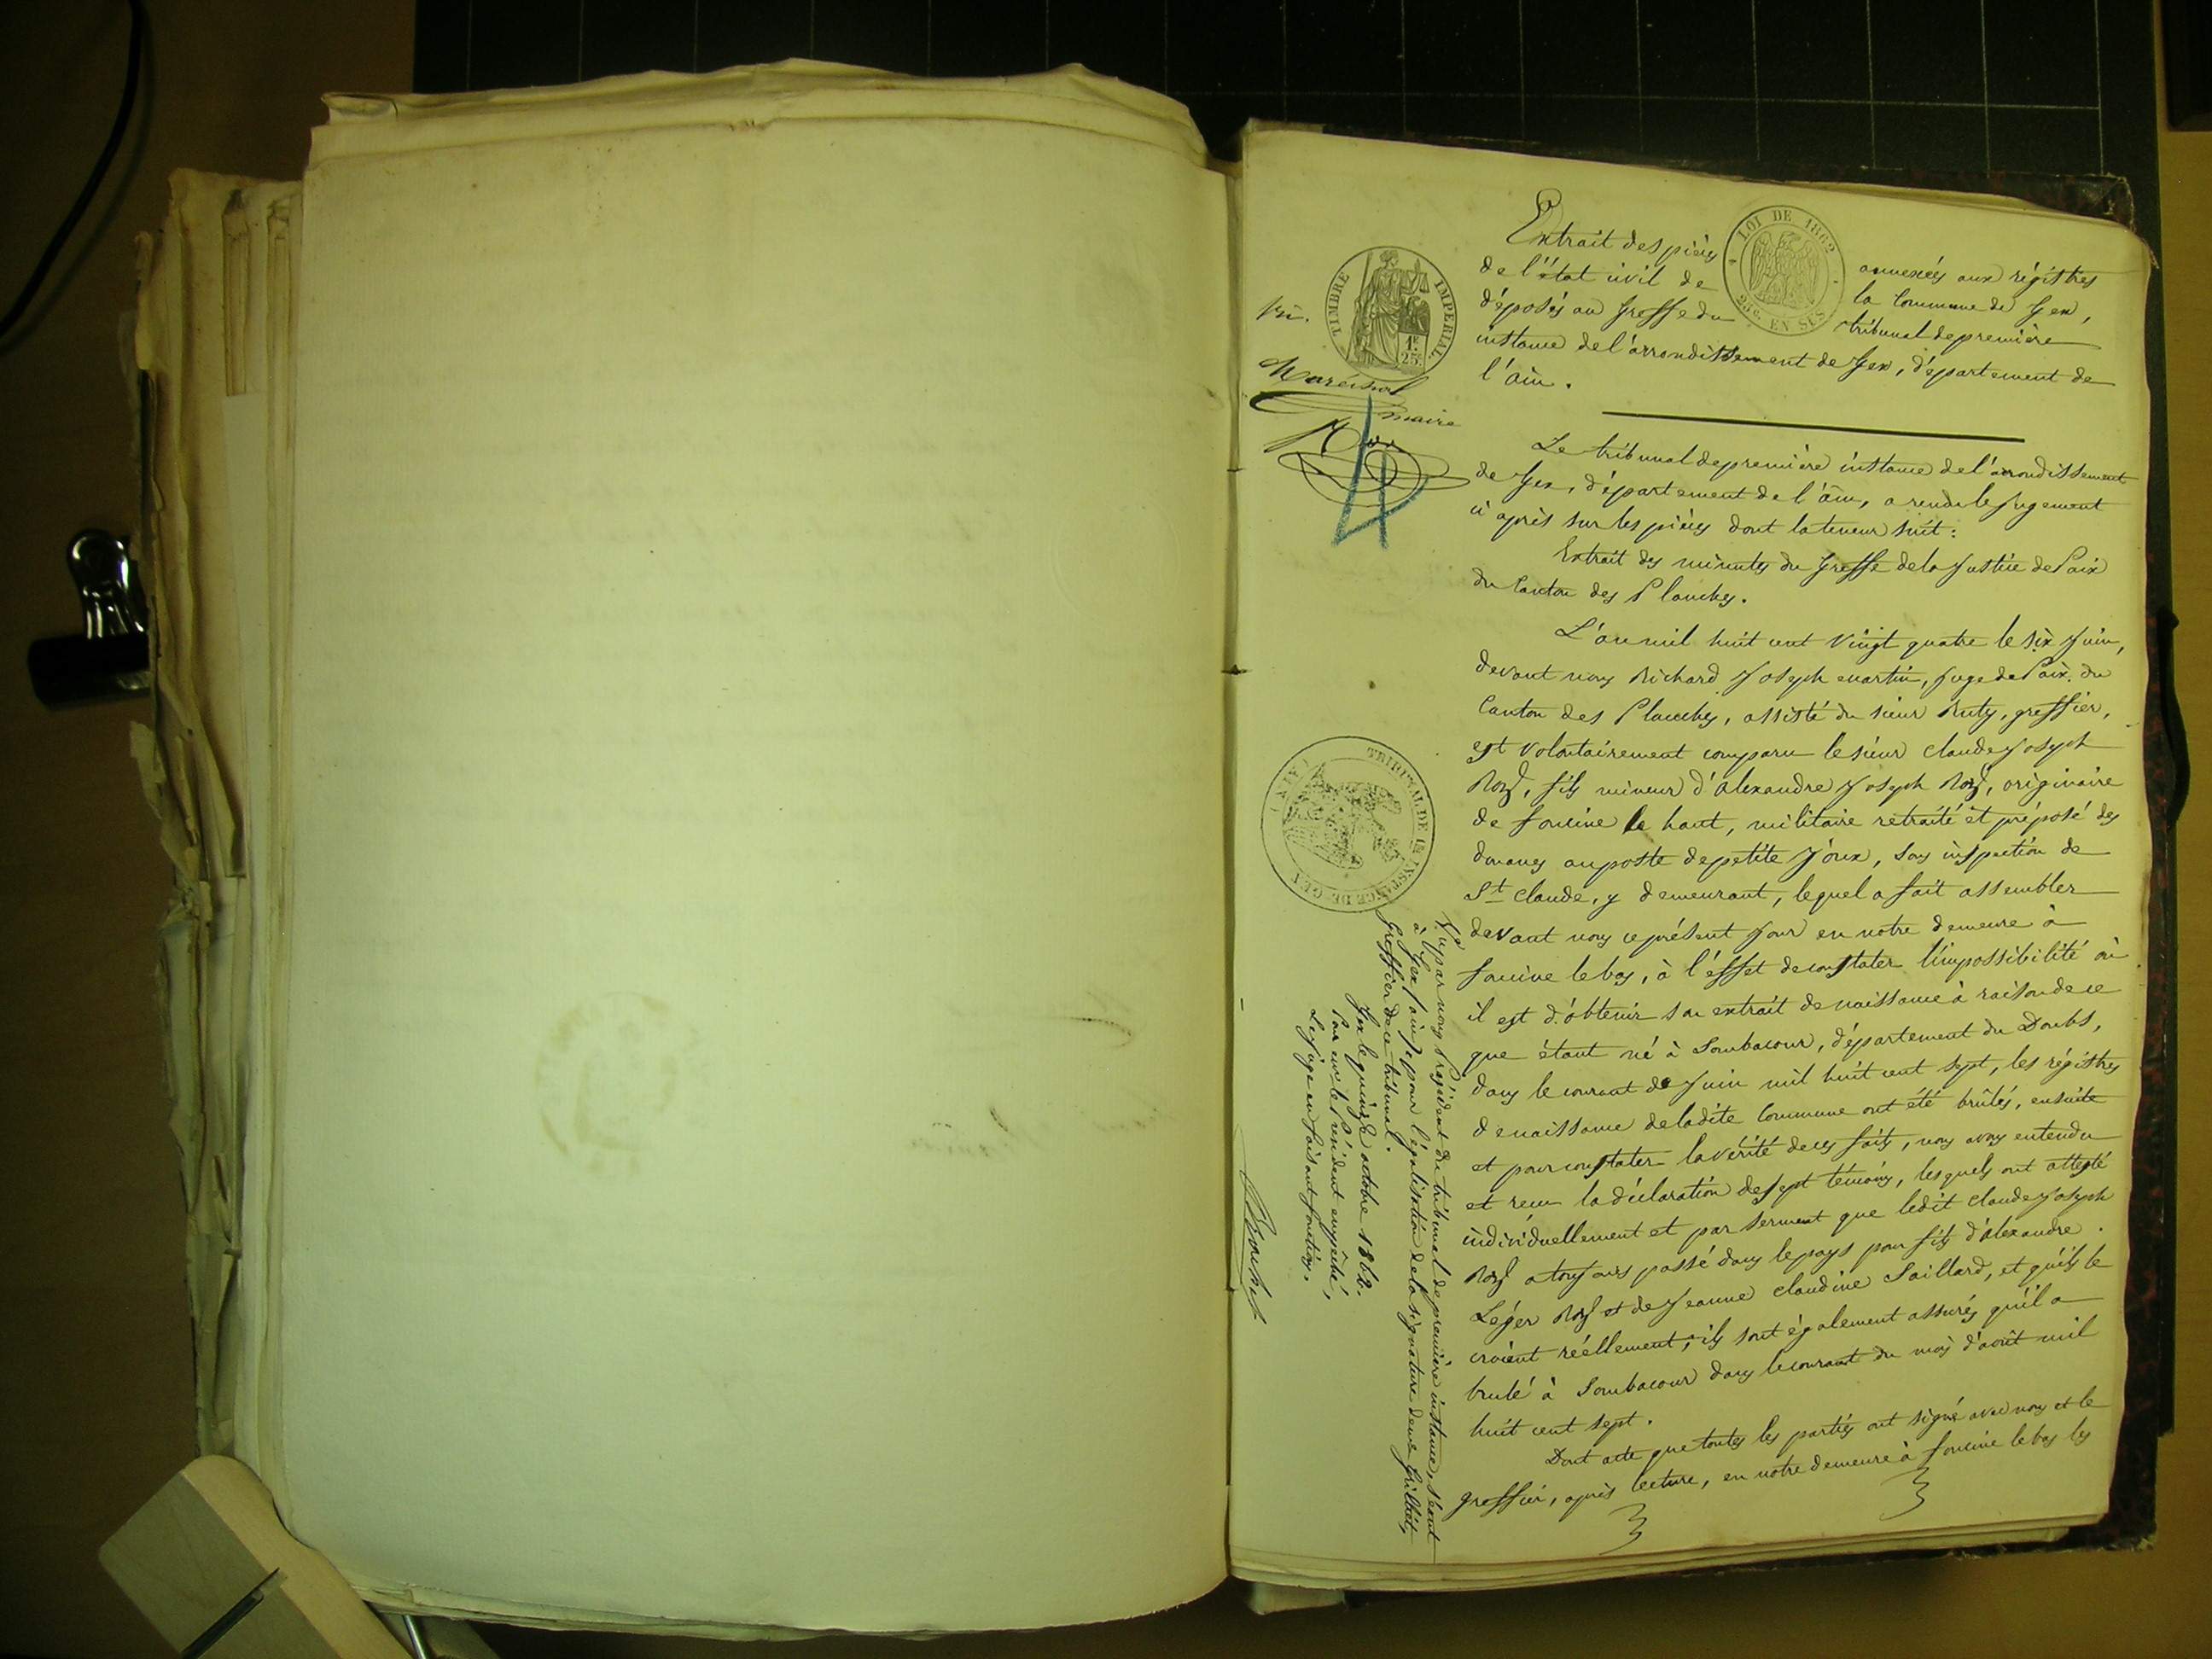 Extrait des pièces annexées aux régistres
de l'état civil de la Commune de Gex,
déposés au Greffe du tribunal de première
instance de l'arrondissement de Gex, département de
l'ain.
LOI DE 1862
25c. EN SUS
TIMBRE IMPERIAL
1F 25c
Maréchal
maire
4
Le tribunal de première instance de l'arrondissement
de Gex, département de l'ain, a rendu le jugement
ci après sur les pièces dont la teneur suit :
Extrait des minutes du Greffe de la Justice de Paix
du Canton des Planches.
L'an mil huit cent vingt quatre le six Juin,
devant nous Richard Joseph martin, juge de Paix du
Canton des Planches, assisté du sieur Ruty, greffier,
est volontairement comparu le sieur Claude Joseph
Roz, fils mineur d'alexandre Joseph Roz, originaire
de foncine le haut, militaire retraité et préposé des
douanes au poste de petite Joux, sous inspection de
St Claude, y demeurant, lequel a fait assembler
devant nous ce présent jour en notre demeure à
foncine le bas, à l'effet de constater l'impossibilité où
il est d'obtenir son extrait de naissance à raison de ce
que étant né à Sombacour, département du Doubs,
dans le courant de Juin mil huit cent sept, les régistres
de naissance de ladite Commune ont été brûlés, ensuite
et pour constater la vérité de ces faits, nous avons entendu
et reçu la déclaration de sept témoins, lesquels ont attesté
individuellement et par serment que ledit Claude Joseph
Roz a toujours passé dans le pays pour fils d'alexandre
Léger Roz et de Jeanne Claudine Saillard, et qu'ils le
croient réellement ; ils sont également assurés qu'il a
brulé à Sombacour dans le courant du mois d'août mil
huit cent sept.
Dont acte que toutes les parties ont signé avec nous et le
greffier, après lecture, en notre demeure à foncine le bas les
TRIBUNAL DE 1re INSTANCE DE GEX
(AIN)
Vu par nous Président du tribunal de première instance, séant
à Gex, pour légalisation de la signature de me
Greffier de ce tribunal.
Gex le quinze octobre 1862.
Pour le Président empêché,
Le Juge en faisant fonctions.